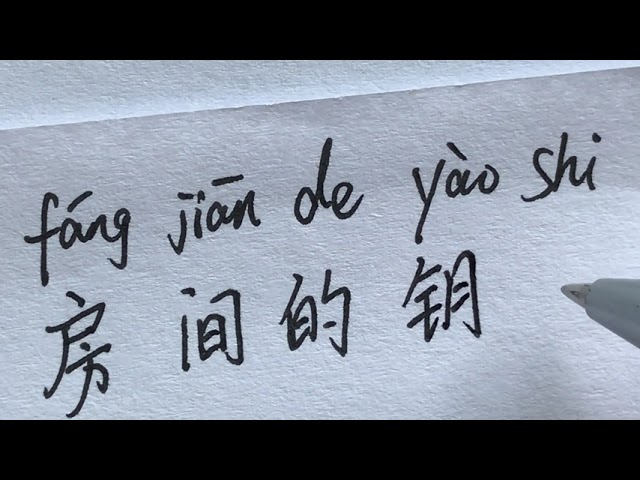 fáng jiān de yào shi
房间的钥